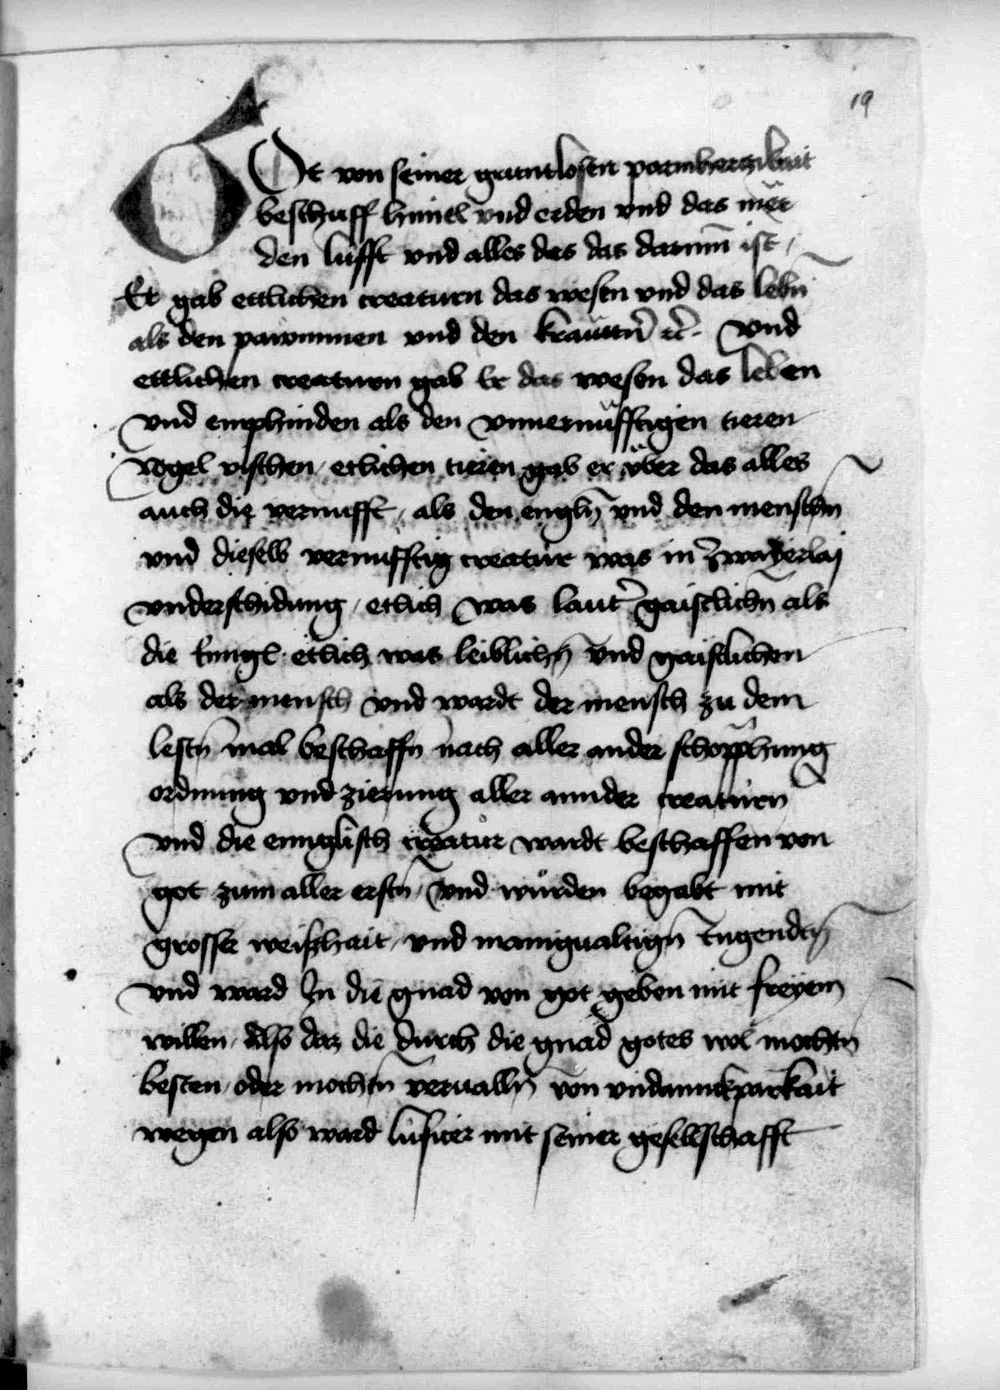 19
GOt von seiner gruntlosen parmherczikait
beschuff himel vnd erden vnd das mer
den lufft vnd alles das das darinn ist /
Er gab ettlichen creaturn das wesen vnd das lebn
als den pawmmen vnd den krautt̃n ꝛc̃. Vnd
ettlichen creaturn gab Er das wesen das leben
vnd emphinden als den vnuernufftigen tieren
vogel vischen / etlichen tieren gab er über das alles
auch die vernufft / als den engl̃n vnd den menschn
vnd dieselb vernufftig creatur was in zwayerlaj
vnderschidung / etlich was laut̃ gaistlichñ als
die Enngl etlich was leiblichñ vnd gaistlichen
als der mensch vnd wardt der mensch zu dem
lestñ mal beschaffñ nach aller ander schopphung
ordnung vnd zierung aller annder creaturn
vnd die ennglisch creatur wardt beschaffen von
got zum aller erstñ / vnd wurden begabt mit
grosser weishait / vnd manigualtign̄ tugendñ
vnd ward In die gnad von got geben mit freyem
willen / Also daz die durch die gnad gotes wol mochtñ
besten / oder mochtñ veruallñ von vndannckparkait
wegen also ward lucifer mit seiner gesellschafft